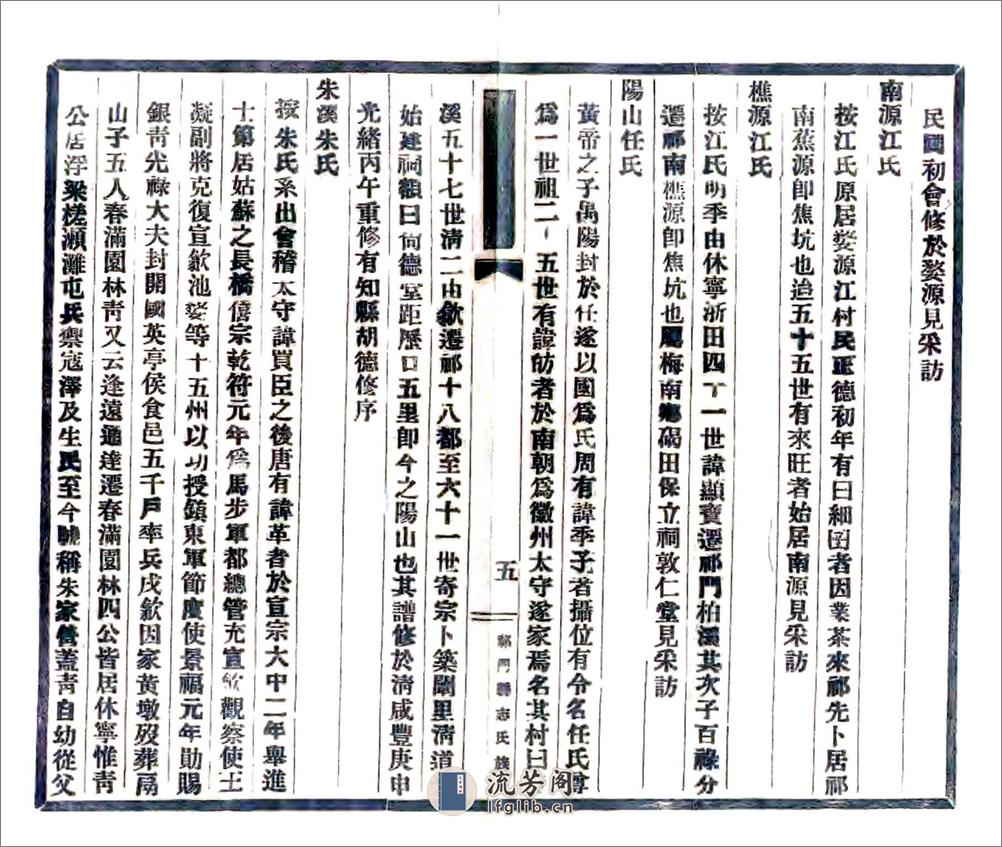 民國初會修於婺源見采訪
南源江氏
按江氏原居婺源江村民正德初年有曰細囝者因業茶來祁先卜居祁
南蕉源即焦坑也迨五十五世有來旺者始居南源見采訪
樵源江氏
按江氏明季由休寧浙田四十一世諱顯寶遷祁門柏溪其次子百祿分
遷祁南樵源即焦坑也屬梅南鄉碣田保立祠敦仁堂見采訪
陽山任氏
黃帝之子禺陽封於任遂以國爲氏周有諱季子者攝位有令名任氏尊
爲一世祖二十五世有諱昉者於南朝爲徽州太守遂家焉名其村曰
溪五十七世清二由歙遷祁十八都至六十一世寄宗卜築閶里清道
始建祠額曰尚德堂距歷口五里即今之陽山也其譜修於清咸豐庚申
光緒丙午重修有知縣胡德修序
朱溪朱氏
按朱氏系出會稽太守諱買臣之後唐有諱革者於宣宗大中二年舉進
士第居姑蘇之長橋僖宗乾符元年爲馬步軍都總管充宣歙觀察使王
凝副將克復宣歙池婺等十五州以功授鎮東軍節度使景福元年勛賜
銀青光祿大夫封開國英亭侯食邑五千戶率兵戍歙因家黃墩歿葬扃
山子五人春滿園林青又云逢遠遁達遷春滿園林四公皆居休寧惟青
公居浮梁槎瀨灘屯兵禦寇澤及生民至今號稱朱家營蓋青自幼從父
五
祁門縣志氏族
流芳阁
lfglib.cn